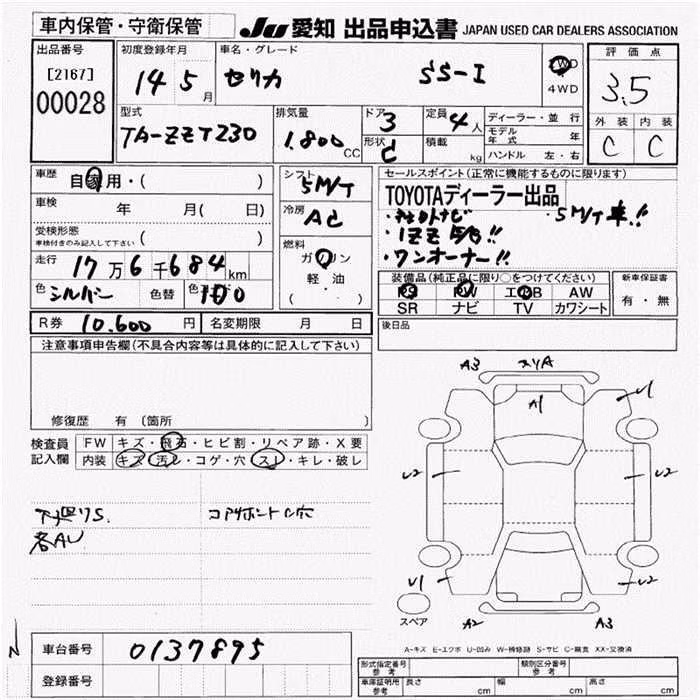 車内保管・守衛保管 JU 愛知 出品申込書 JAPAN USED CAR DEALERS ASSOCIATION
出品番号 初度登録年月 車名・グレード 評価点
[2167] 14 5月 セリカ SS-I 2WD 3.5
00028 4WD
型式 排気量 ドア 3 定員 4人 ディーラー・並行 外装 内装
TA-ZZT230 1.800CC 形状 C 積載 kg モデル年式 年 C C
ハンドル 左・右
車歴 自家用・( ) シフト 5M/T セールスポイント(正常に機能するものに限ります)
車検 年 月( 日) 冷房 AC TOYOTAディーラー出品
受検形態 ・ナビ ・5M/T車!!
車検付きのみ記入して下さい ( ) 燃料 ガソリン ・1ZZ
走行 17万6千684km 軽油 ・ワンオーナー!!
(・ )
色 シルバー 色替 色コード 1D0 装備品(純正品に限り○をつけてください) 新車保証書
PS PW エアB AW 有・無
SR ナビ TV カワシート
R券 10.600円 名変期限 月 日 後日品
注意事項申告欄(不具合内容等は具体的に記入して下さい)
修復歴 有 (箇所 )
検査員 FW キズ・飛石・ヒビ割・リペア跡・X要
記入欄 内装 キズ・汚レ・コゲ・穴・スレ・キレ・破レ
下廻りS. コアサポートC穴
各AU
A3 スリA
A1 U1
U2 U2
U1 U2
スペア A2 A3
A-キズ E-エクボ U-凹み W-補修跡 S-サビ C-腐食 XX-交換済
車台番号 0137895
登録番号
形式指定番号 参考 類別区分番号 参考
車庫証明用 参考 長さ cm 幅 cm 高さ cm